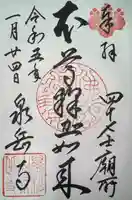 奉拝
四十七士廟所
本尊釈迦如来
令和五年
一月廿四日
泉岳寺